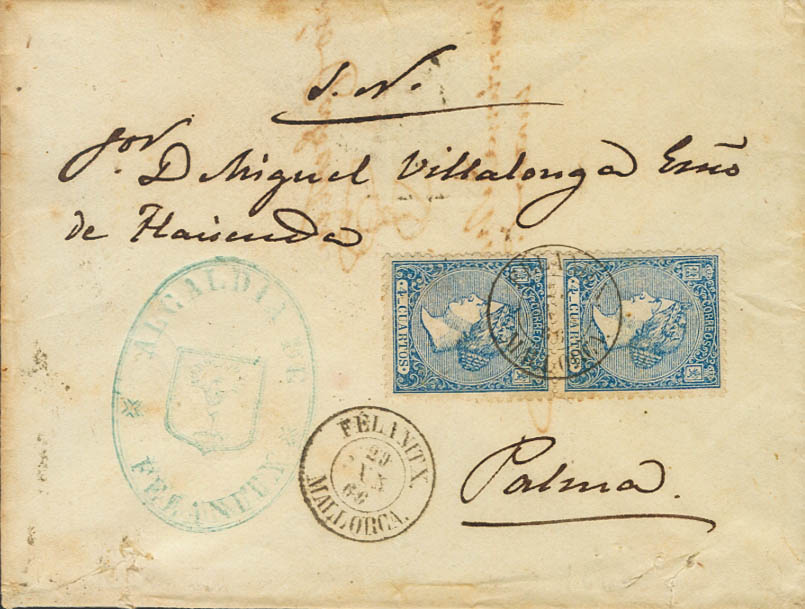 S. N.
por. D Miguel Villalonga Esmo
de Hacienda
4 CUARTOS
CORREOS
4 CUARTOS
CORREOS
ALCALDIA DE
FELANITX
FELANITX.
29
66
MALLORCA.
Palma.